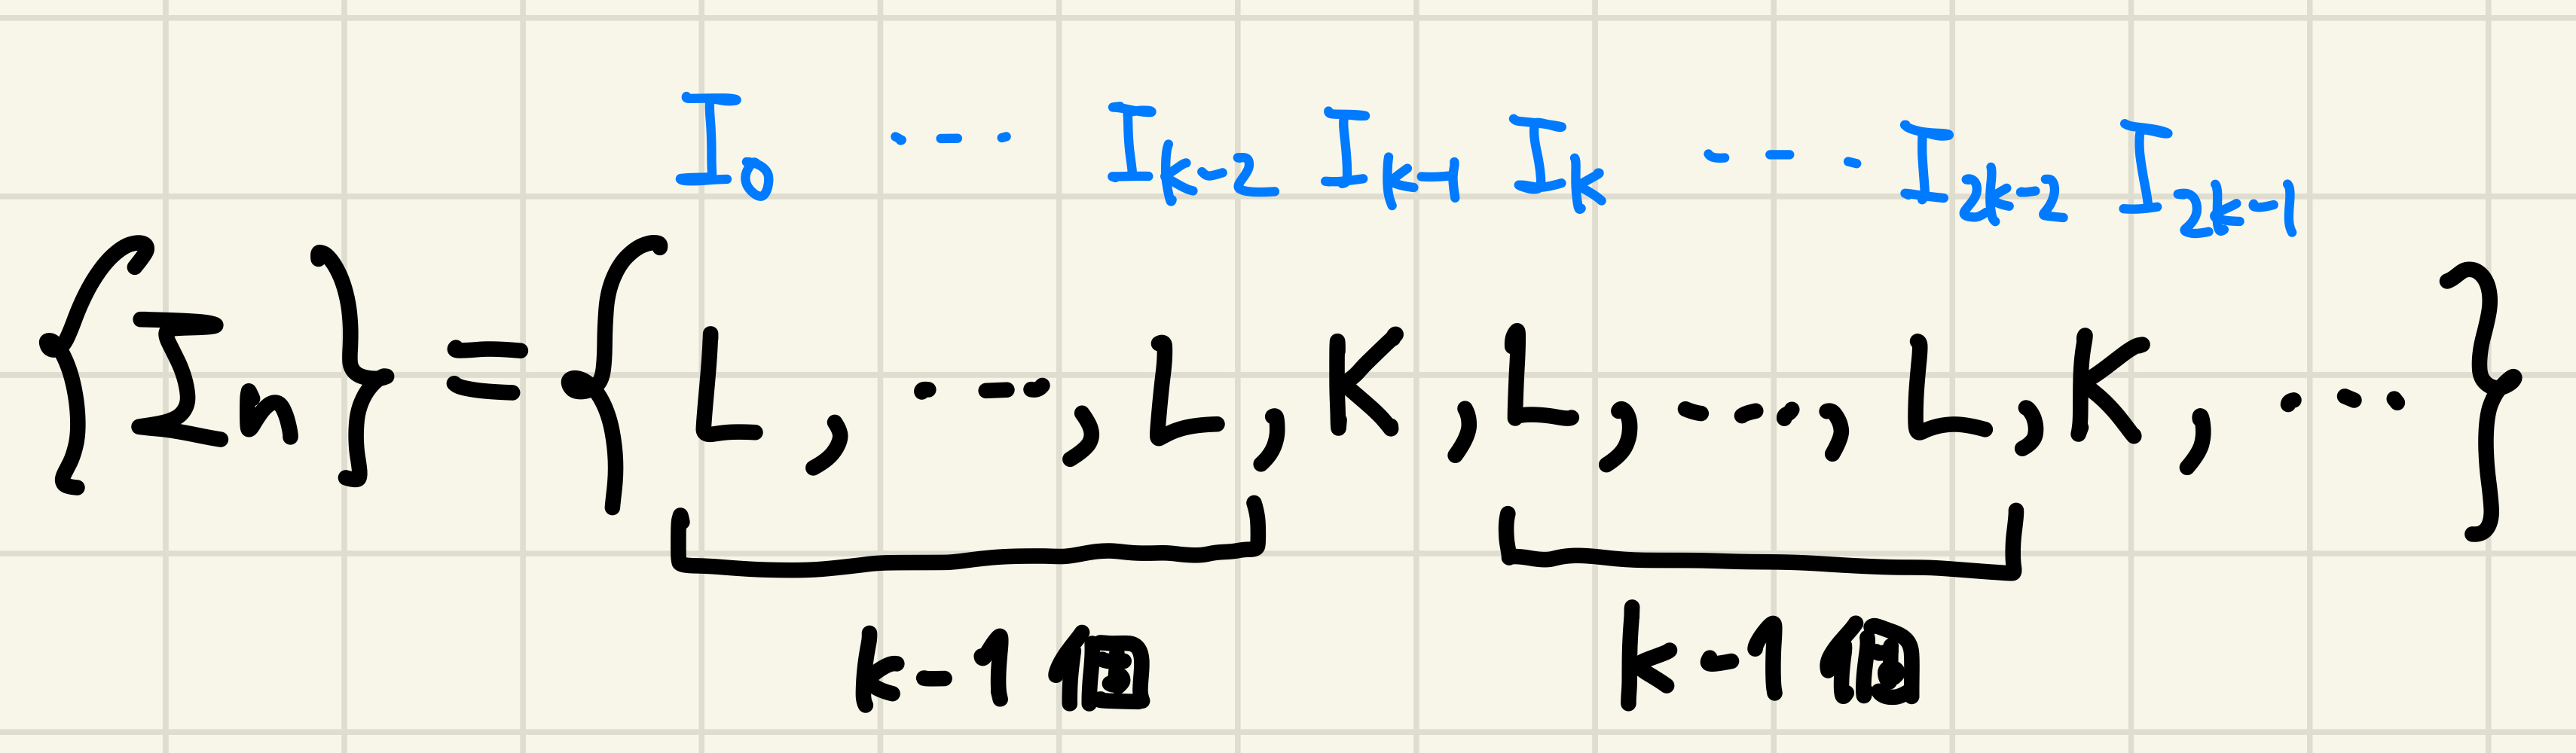 I₀ --- Iₖ₋₂ Iₖ₋₁ Iₖ --- I₂ₖ₋₂ I₂ₖ₋₁
{Iₙ} = {L, ---, L, K, L, ---, L, K, ---}
k-1個 k-1個